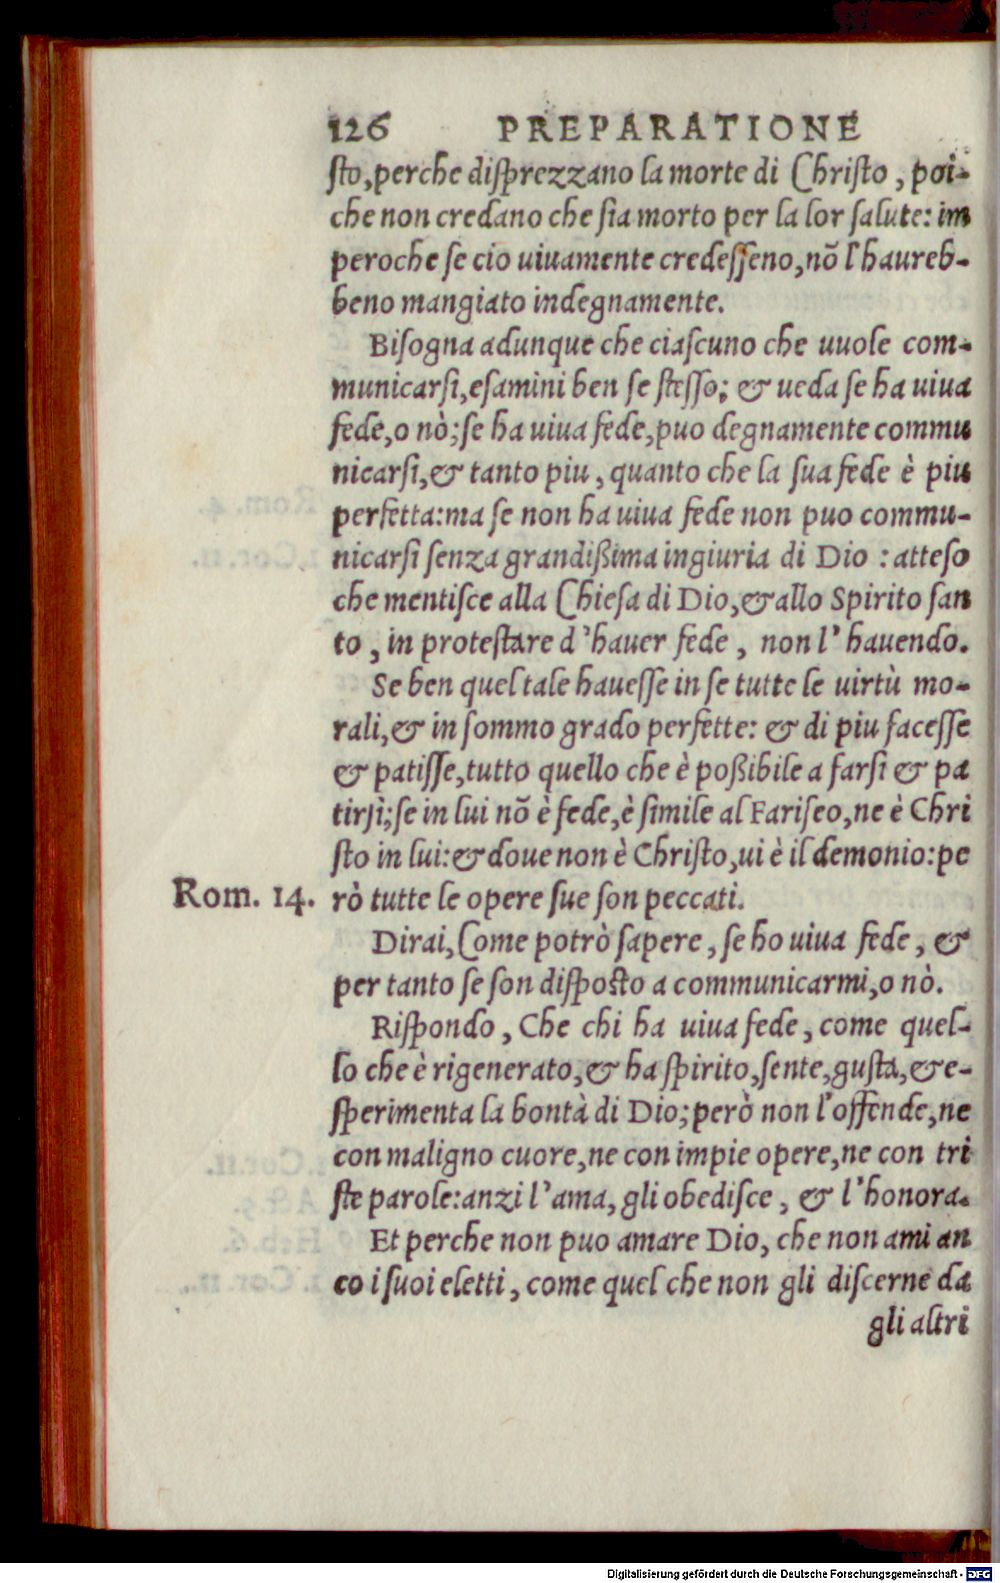 126 PREPARATIONE
sto, perche disprezzano la morte di Christo, poi-
che non credano che sia morto per la lor salute: im
peroche se cio uiuamente credesseno, nõ l'haureb-
beno mangiato indegnamente.
Bisogna adunque che ciascuno che uuole com-
municarsi, esamini ben se stesso; & ueda se ha uiua
fede, o nò; se ha uiua fede, puo degnamente commu
nicarsi, & tanto piu, quanto che la sua fede è piu
perfetta: ma se non ha uiua fede non puo commu-
nicarsi senza grandißima ingiuria di Dio: atteso
che mentisce alla Chiesa di Dio, & allo Spirito san
to, in protestare d'hauer fede, non l'hauendo.
Se ben quel tale hauesse in se tutte le uirtù mo-
rali, & in sommo grado perfette: & di piu facesse
& patisse, tutto quello che è poßibile a farsi & pa
tirsi; se in lui nõ è fede, è simile al Fariseo, ne è Chri
sto in lui: & doue non è Christo, ui è il demonio: pe
Rom. 14. rò tutte le opere sue son peccati.
Dirai, Come potrò sapere, se ho uiua fede, &
per tanto se son disposto a communicarmi, o nò.
Rispondo, Che chi ha uiua fede, come quel-
lo che è rigenerato, & ha spirito, sente, gusta, & e-
sperimenta la bontà di Dio; però non l'offende, ne
con maligno cuore, ne con impie opere, ne con tri
ste parole: anzi l'ama, gli obedisce, & l'honora.
Et perche non puo amare Dio, che non ami an
co i suoi eletti, come quel che non gli discerne da
gli altri
Digitalisierung gefördert durch die Deutsche Forschungsgemeinschaft - DFG